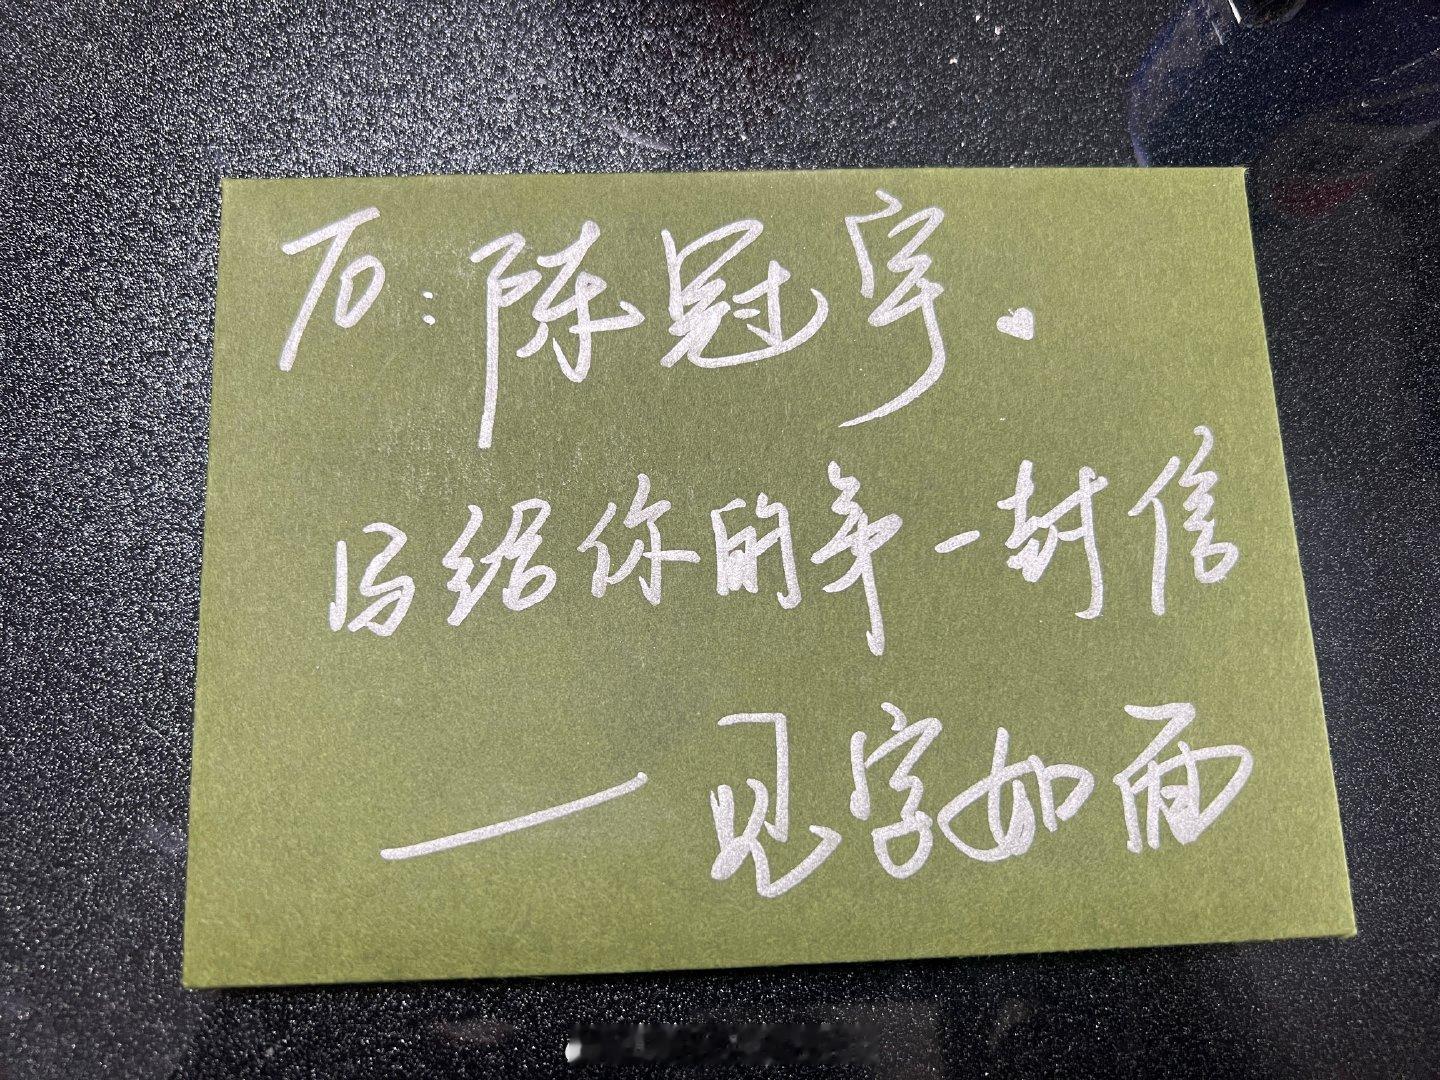 TO:陈冠宇、
写给你的第一封信
——见字如面